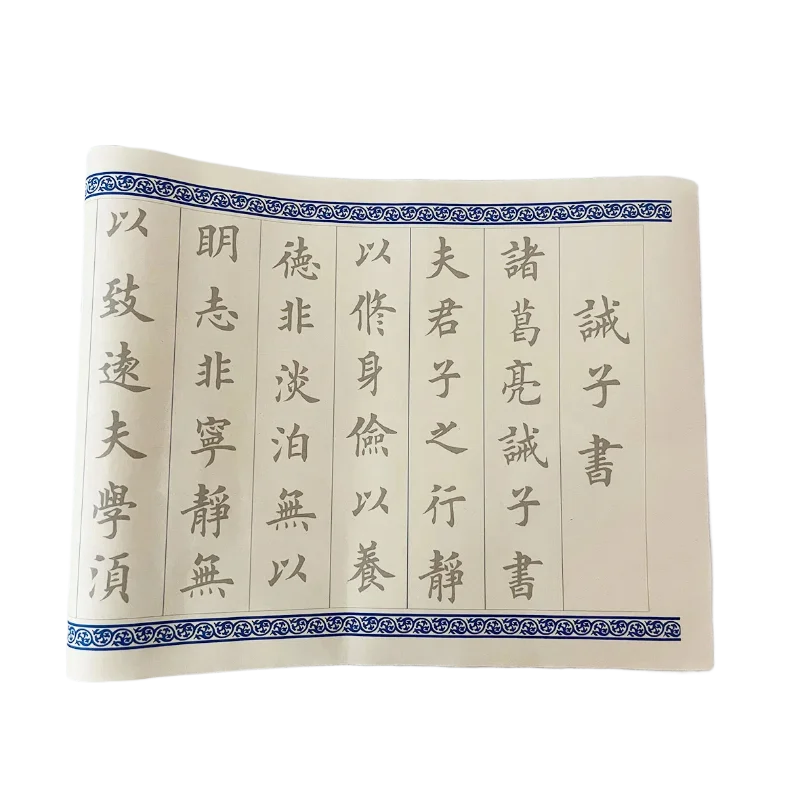 誡子書
諸葛亮誡子書
夫君子之行靜
以修身儉以養
德非淡泊無以
明志非寧靜無
以致遠夫學須